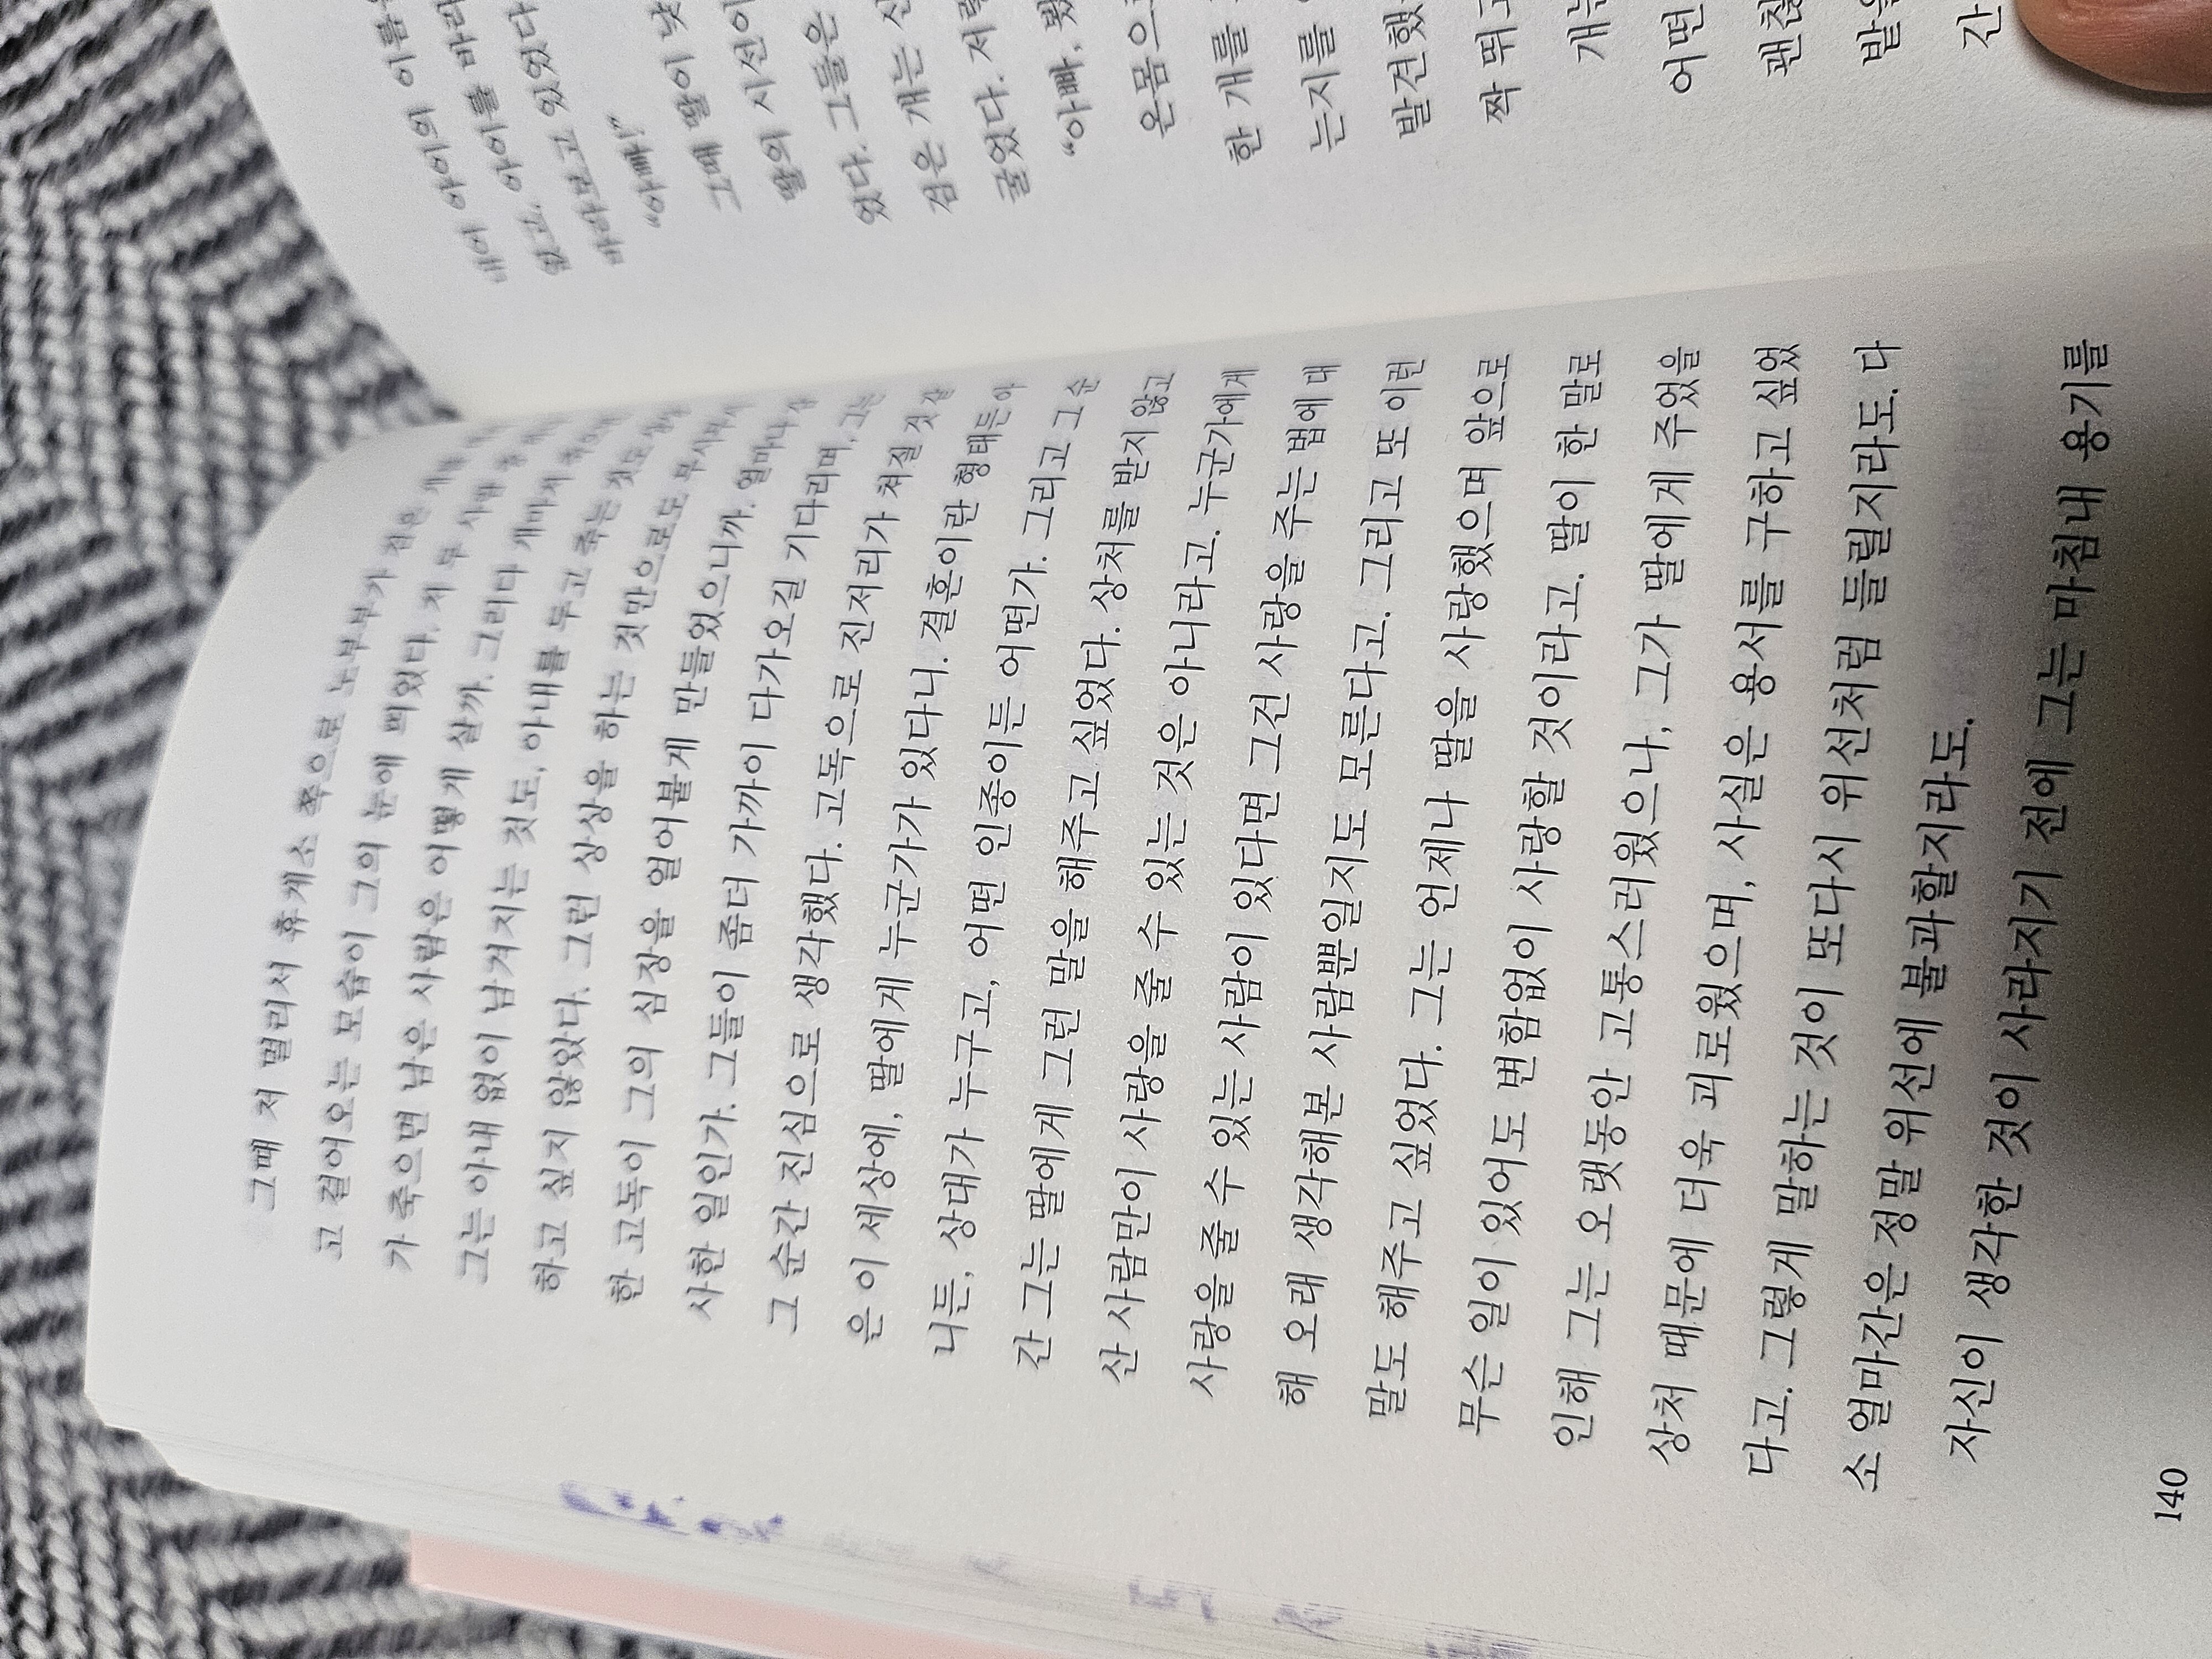 그때 저 멀리서 휴게소 쪽으로 노부부가 검은 개를
고 걸어오는 모습이 그의 눈에 띄었다. 저 두 사람 중
가 죽으면 남은 사람은 어떻게 살까. 그러다 개마저 죽으면
그는 아내 없이 남겨지는 것도, 아내를 두고 죽는 것도
하고 싶지 않았다. 그런 상상을 하는 것만으로도
한 고독이 그의 심장을 얼어붙게 만들었으니까. 얼마나
사한 일인가. 그들이 좀더 가까이 다가오길 기다리며, 그는
그 순간 진심으로 생각했다. 고독으로 진저리가 쳐질 것 같
은 이 세상에, 딸에게 누군가가 있다니. 결혼이란 형태든 아
니든, 상대가 누구고, 어떤 인종이든 어떤가. 그리고 그 순
간 그는 딸에게 그런 말을 해주고 싶었다. 상처를 받지 않고
산 사람만이 사랑을 줄 수 있는 것은 아니라고. 누군가에게
사랑을 줄 수 있는 사람이 있다면 그건 사랑을 주는 법에 대
해 오래 생각해본 사람뿐일지도 모른다고. 그리고 또 이런
말도 해주고 싶었다. 그는 언제나 딸을 사랑했으며 앞으로
무슨 일이 있어도 변함없이 사랑할 것이라고. 딸이 한 말로
인해 그는 오랫동안 고통스러웠으나, 그가 딸에게 주었을
상처 때문에 더욱 괴로웠으며, 사실은 용서를 구하고 싶었
다고. 그렇게 말하는 것이 또다시 위선처럼 들릴지라도. 다
소 얼마간은 정말 위선에 불과할지라도.
자신이 생각한 것이 사라지기 전에 그는 마침내 용기를
140
내어 아이의 이름
고, 아이를 바라
바라보고 있었다
“아빠!”
그때 딸이 낮
딸의 시선이
있다. 그들은
검은 개는 신
굴었다. 저렇
“아빠, 봤
온몸으
한 개를
는지를
발견했
짝 뛰고
개는
어떤
괜찮
발을
간